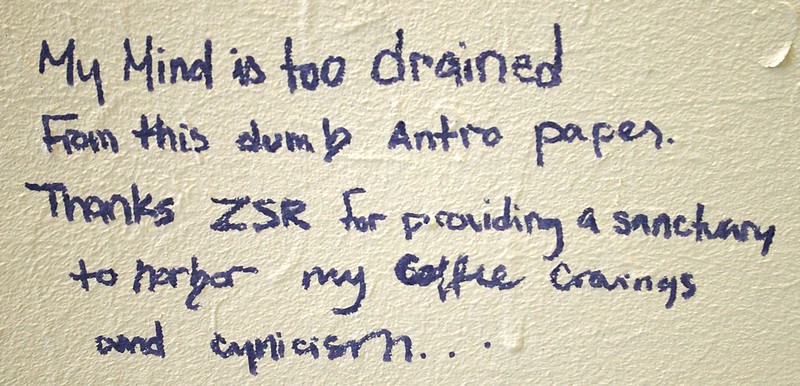 My Mind is too drained
From this dumb Antro paper.
Thanks ZSR for providing a sanctuary
to harbor my Coffee Cravings
and cynicism...